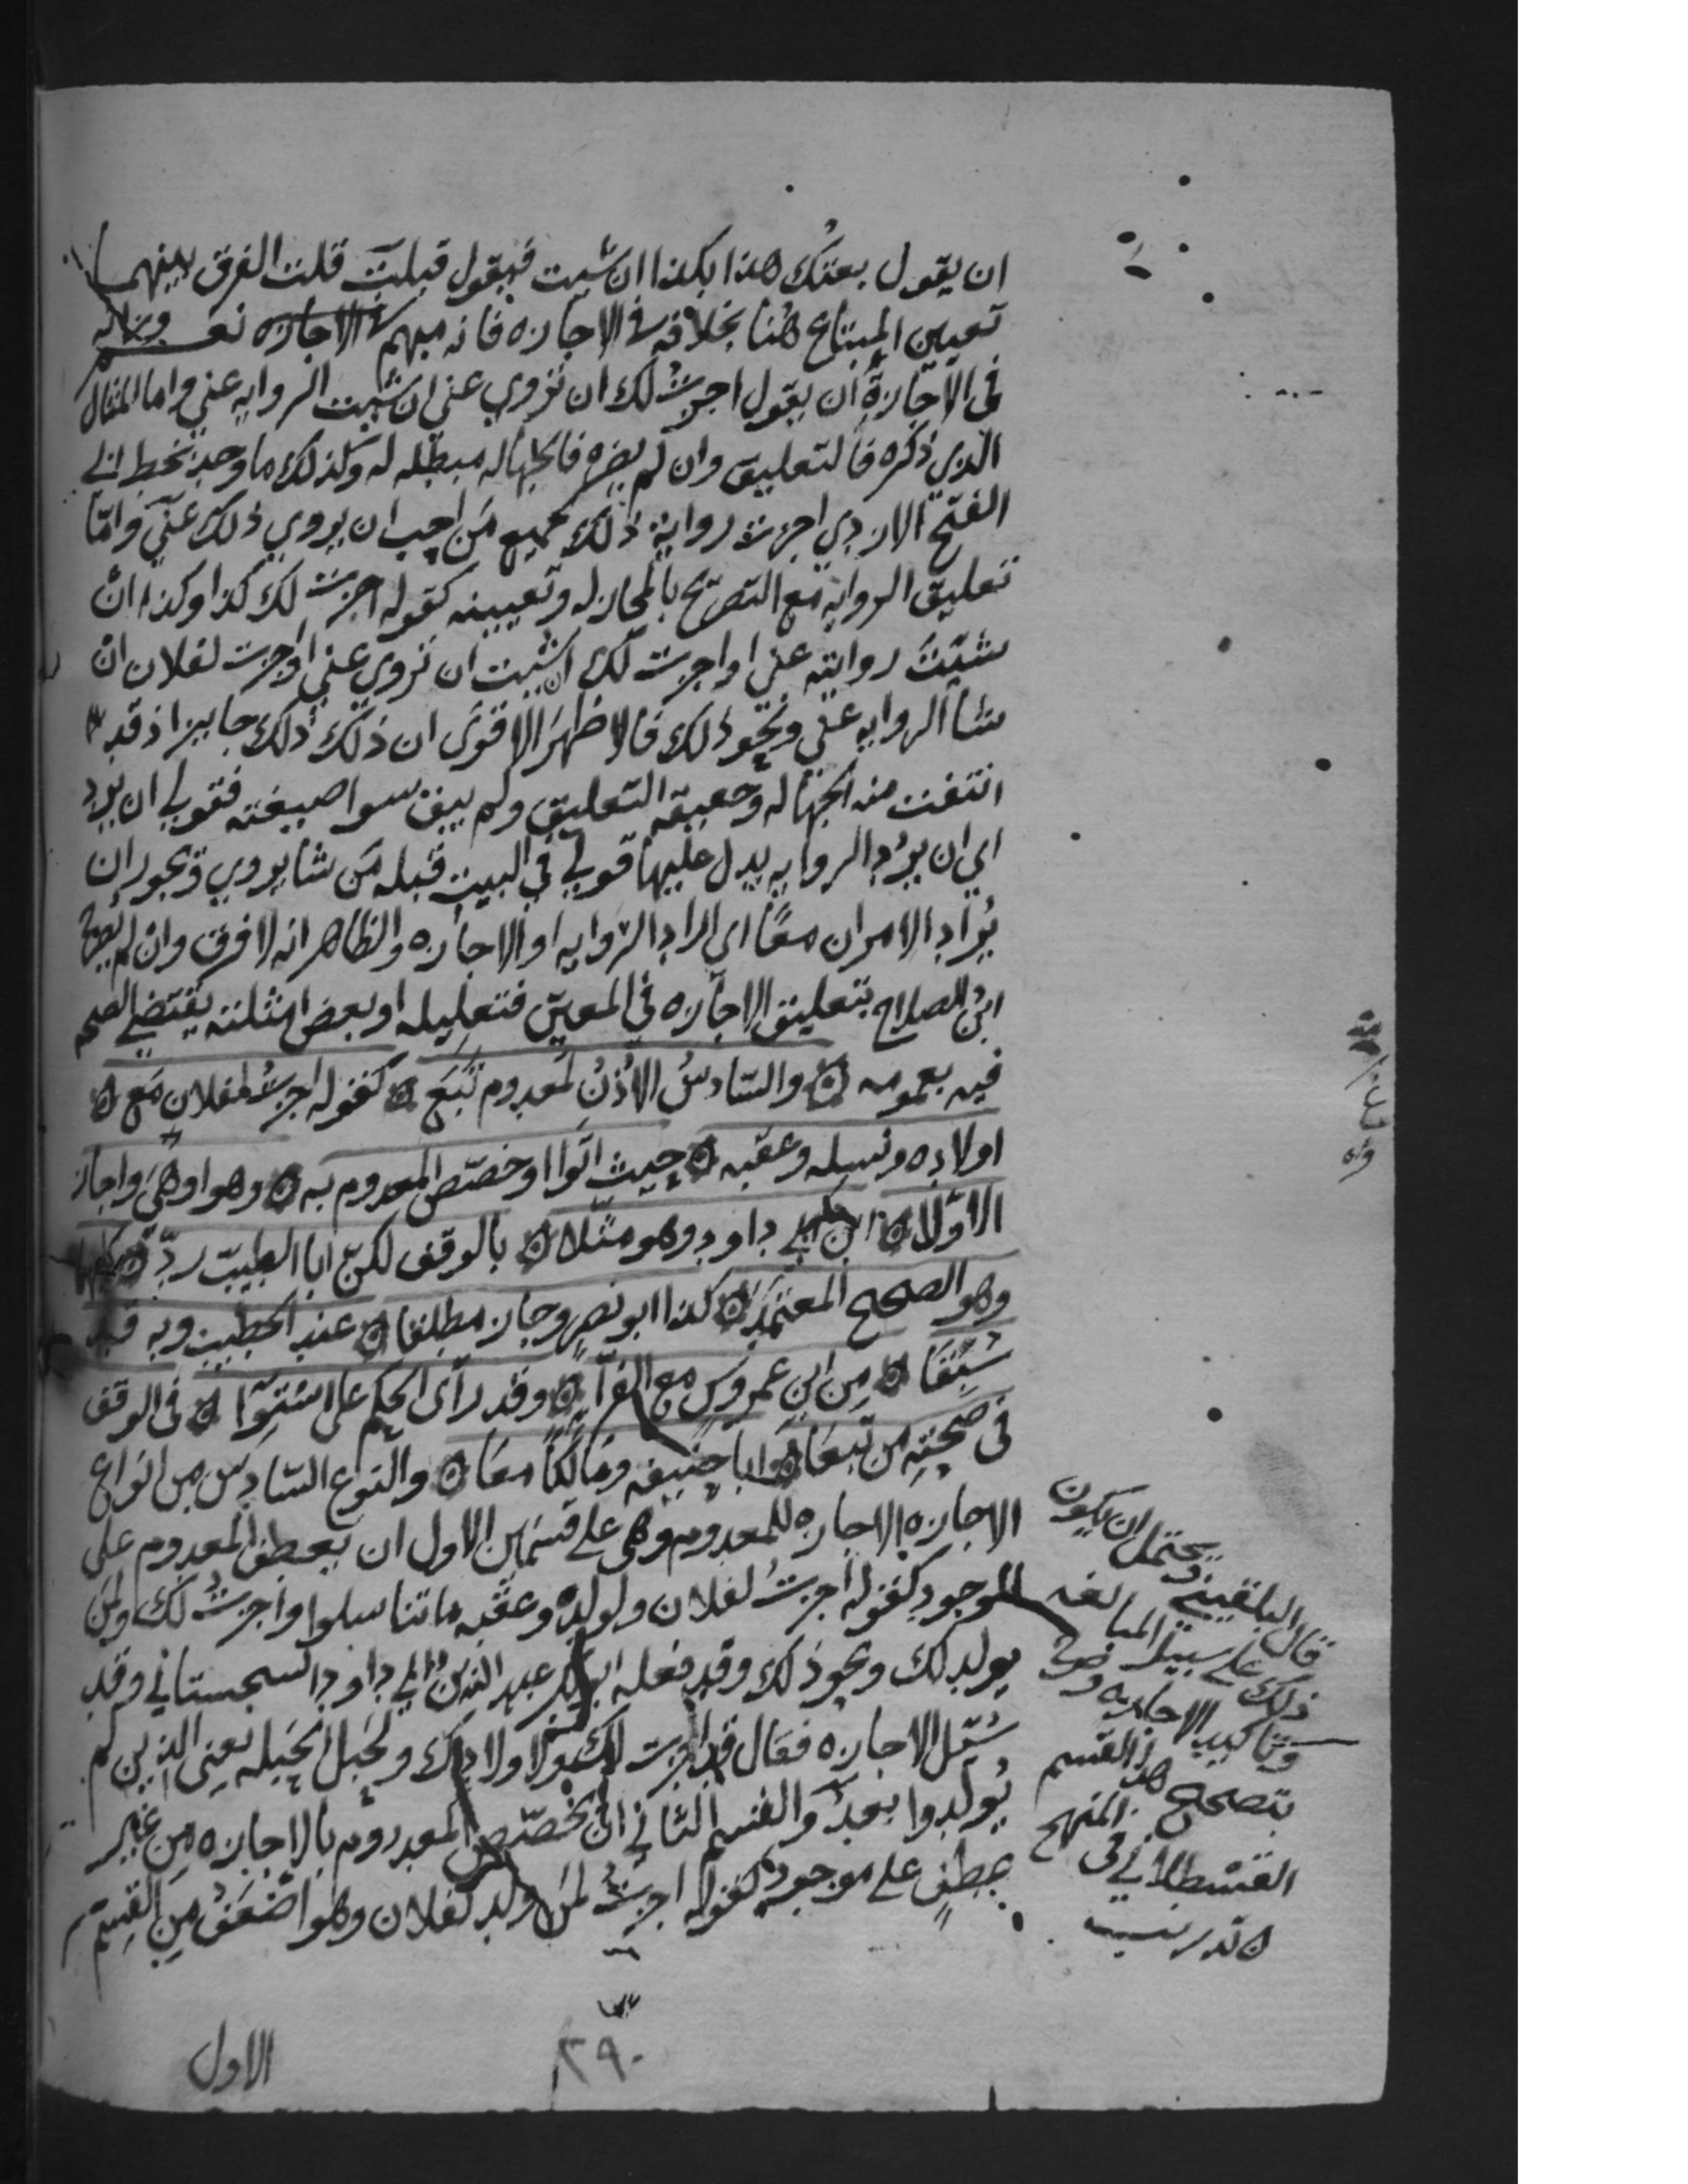 ان يقول بعتك هذا بكذا ان شيت فيقول قبلت قلت الفرق بينهما
تعيين المبتاع هنا بخلافه في الاجازه فانه مبهم في الاجازه نعم وزانه
في الاجازة ان يقول اجزت لك ان تروي عني ان شيت الروايه عني واما المثال
الذي ذكره فالتعليق وان لم يضره فالجهاله مبطله له وكذلك ما وجد بخط ابي
الفتح الازدي اجزت رواية ذلك لجميع من احب ان يروي ذلك عني واما
تعليق الروايه مع التصريح بالمجاز له وتعيينه كقوله اجزت لك كذا وكذا ان
شيت روايته عني او اجزت لك ان شيت ان تروي عني او اجزت لفلان ان
شا الروايه عني ونحو ذلك فالاظهر الاقوى ان ذلك ذلك جايز اذ قد
انتفت منه الجهاله وحقيقة التعليق ولم يبق سوا صيغته فقولي ان يرد
اي ان يرد الروايه يدل عليها قولي في البيت قبله من شا يروي ويجوز ان
يُراد الامران معًا اي اراد الروايه او الاجازه والظاهر انه لا فرق وان لم يصرح
ابن الصلاح بتعليق الاجازه في المعين فتعليله او بعض امثلته يقتضي الصحه
فيه بعمومه ۞ والسّادسُ الاذنُ لمعدوم تَبَع ۞ كقوله اجزتُ لفلان مَع ۞
اولاده ونسله وعقبه ۞ حيث اتوا او خصّص المعدوم به ۞ وهو اوهَى واجاز
الاوّلا ۞ ابن ابي داود وهو مثّلا ۞ بالوقف لكنّ ابا الطيب ردّ ۞ كليهما
وهو الصحيح المعتمد ۞ كذا ابو نصر وجاز مطلقا ۞ عند الخطيب وبه قد
سُبقَا ۞ من ابن عمروس مع الفرّاءِ ۞ وقد رآى الحكم على استوا ۞ في الوقف
في صحته من تبعَا ۞ ابا حنيفه ومالكًا معَا ۞ والنوع السّادس من انواع
الاجازه الاجازه للمعدوم وهي على قسمين الاول ان يعطف المعدوم على
الموجود كقوله اجزتُ لفلان ولولده وعقبه ما تناسلوا او اجزتُ لك ولمن
يولد لك ونحو ذلك وقد فعله ابوبكر عبد الله بن ابي داود السجستاني وقد
سُئل الاجازه فقال قد اجزت لك ولاولادك ولحَبل الحَبَله يعني الذين لم
يُولدوا بعدُ والقسم الثاني ان يخصّص المعدوم بالاجازه من غير
عطفٍ على موجود كقوله اجزتُ لمن يولد لفلان وهو اضعَف من القسم
الاول
٢٩٠
قال البلقيني ويحتمل ان يكون
ذلك على سبيل المبالغه
وتاكيد الاجازه وصرح
بتصحيح هذا القسم
القسطلاني في المنهج